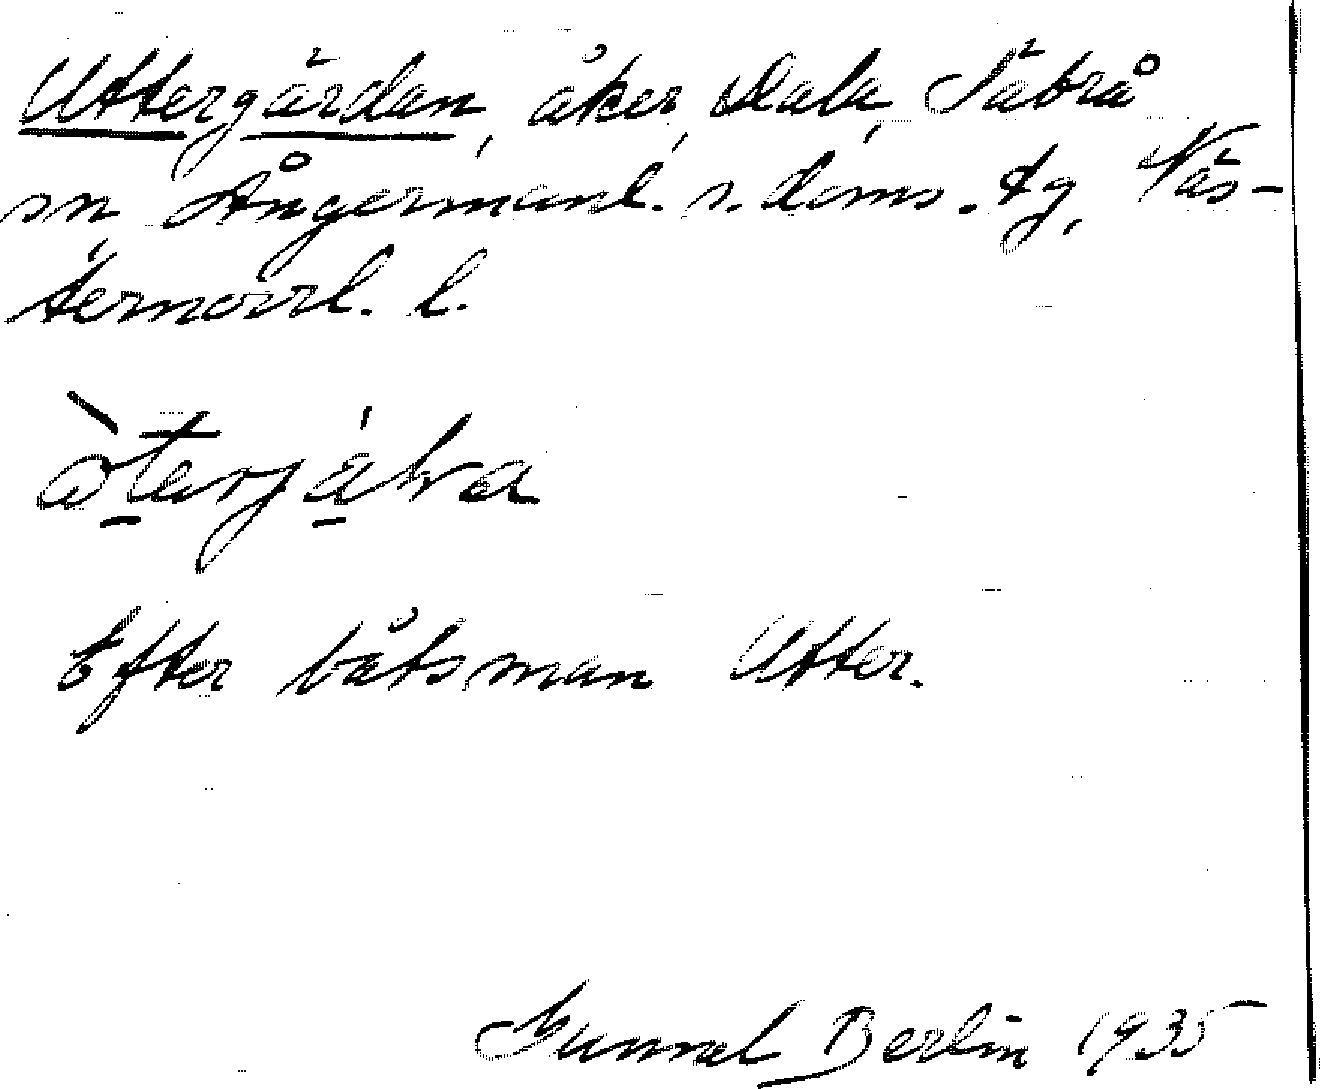 Uttergärdan, åker, Dala, Säbrå
sn, Ångermanl. s. doms. tg, Väs-
ternorrl. l.
Efter båtsman Utter.
Gunnel Berlin 1935